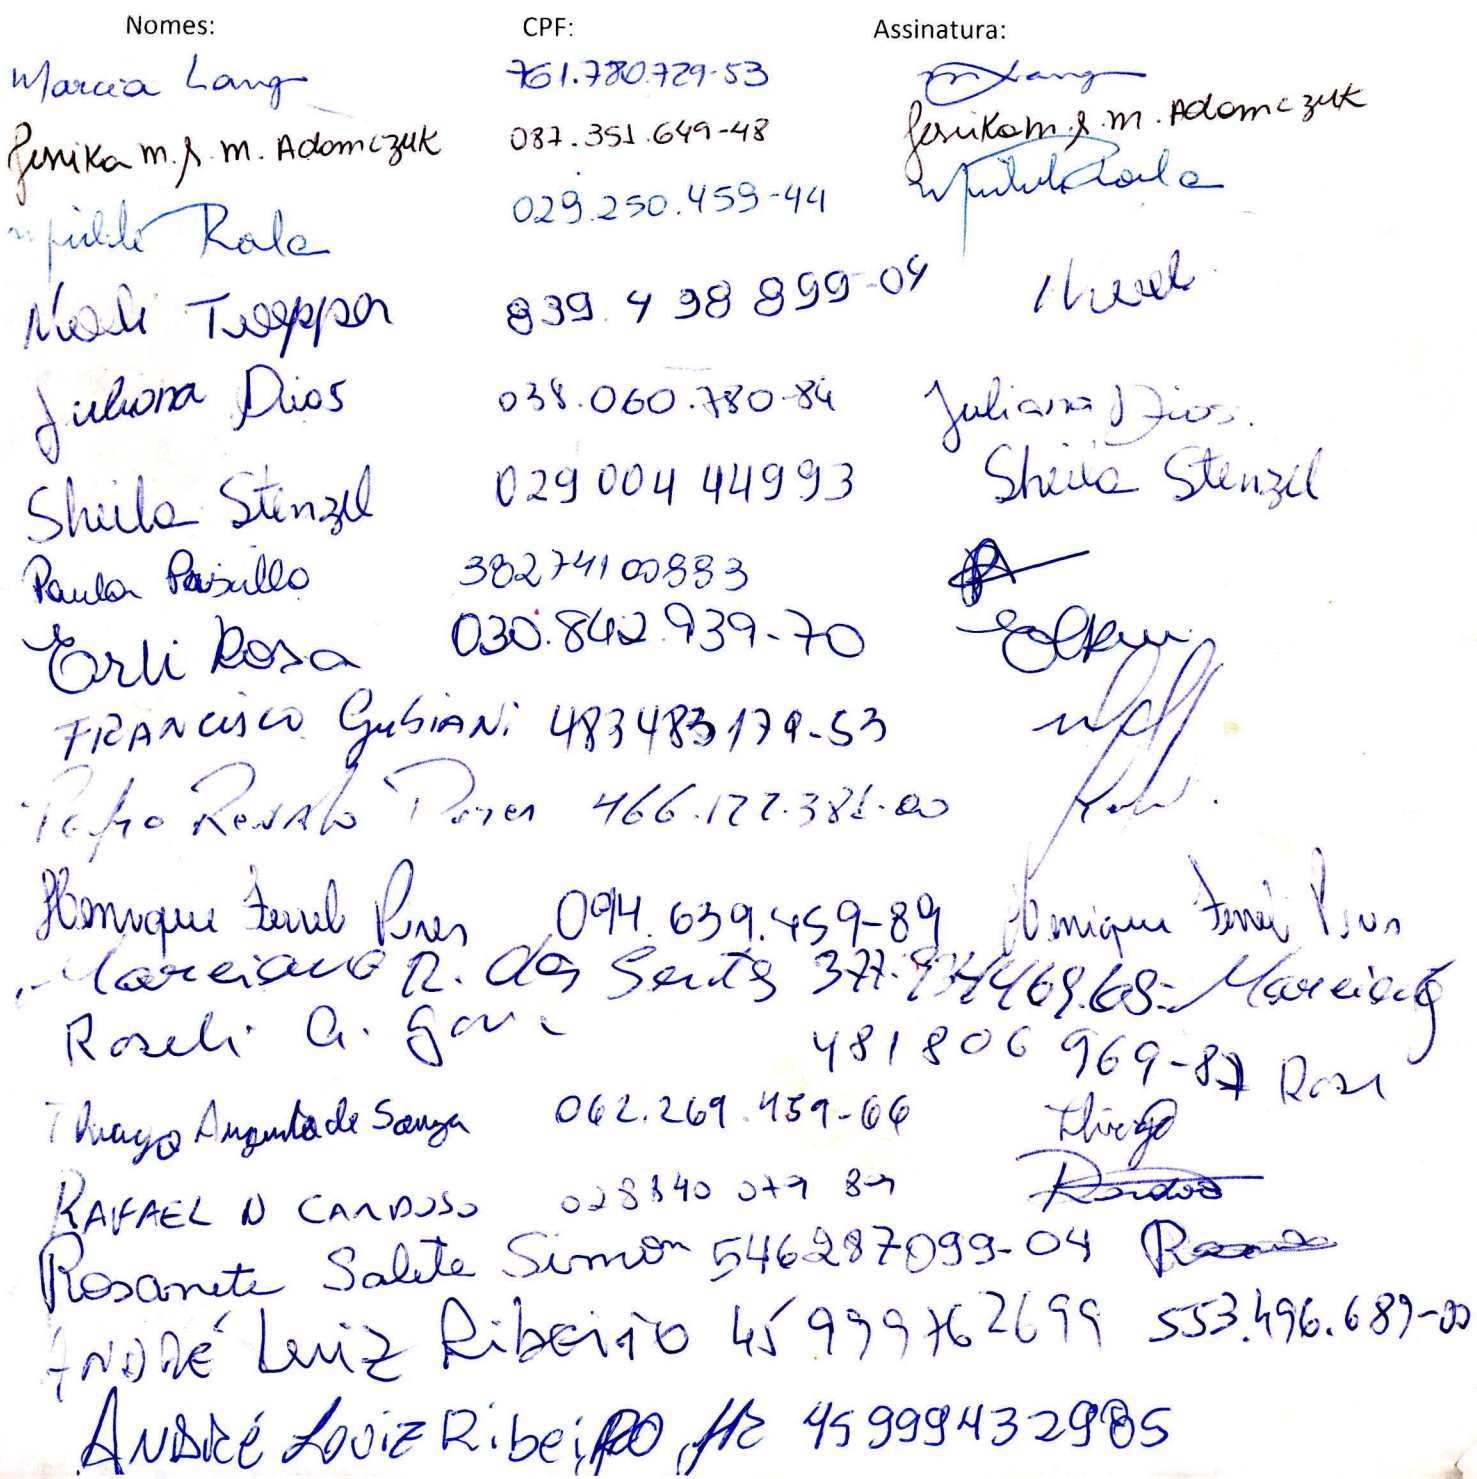 Nomes: CPF: Assinatura:
Marcia Lang 761.780.729-53 Lang
Jenika m. S. m. Adamczuk 087.351.649-48 Jenika m. S. m. Adamczuk
029.250.459-44
839.498899-04
Juliana Dias 038.060.780-84 Juliana Dias.
Sheila Stenzel 029 004 44993 Sheila Stenzel
Paula 38274100883
Erli Rosa 030.842.939-70
FRANCISCO GUBIANI 483483179-53
Pedro Renato Pires
Henrique Ferrel Pires 094.639.459-89 Henrique Ferrel Pires
Marciano R. dos Santos Marciano
Roseli G. 481806 969-87 Rose
Thiago Augusto de Souza 062.269.459-66 Thiago
RAFAEL N CARDOSO
Rosanete Salete Simon 546287099-04
ANDRÉ Luiz Ribeiro 45 999762699 553.496.689-00
ANDRÉ LOUIZ Ribeiro JR 45999432985